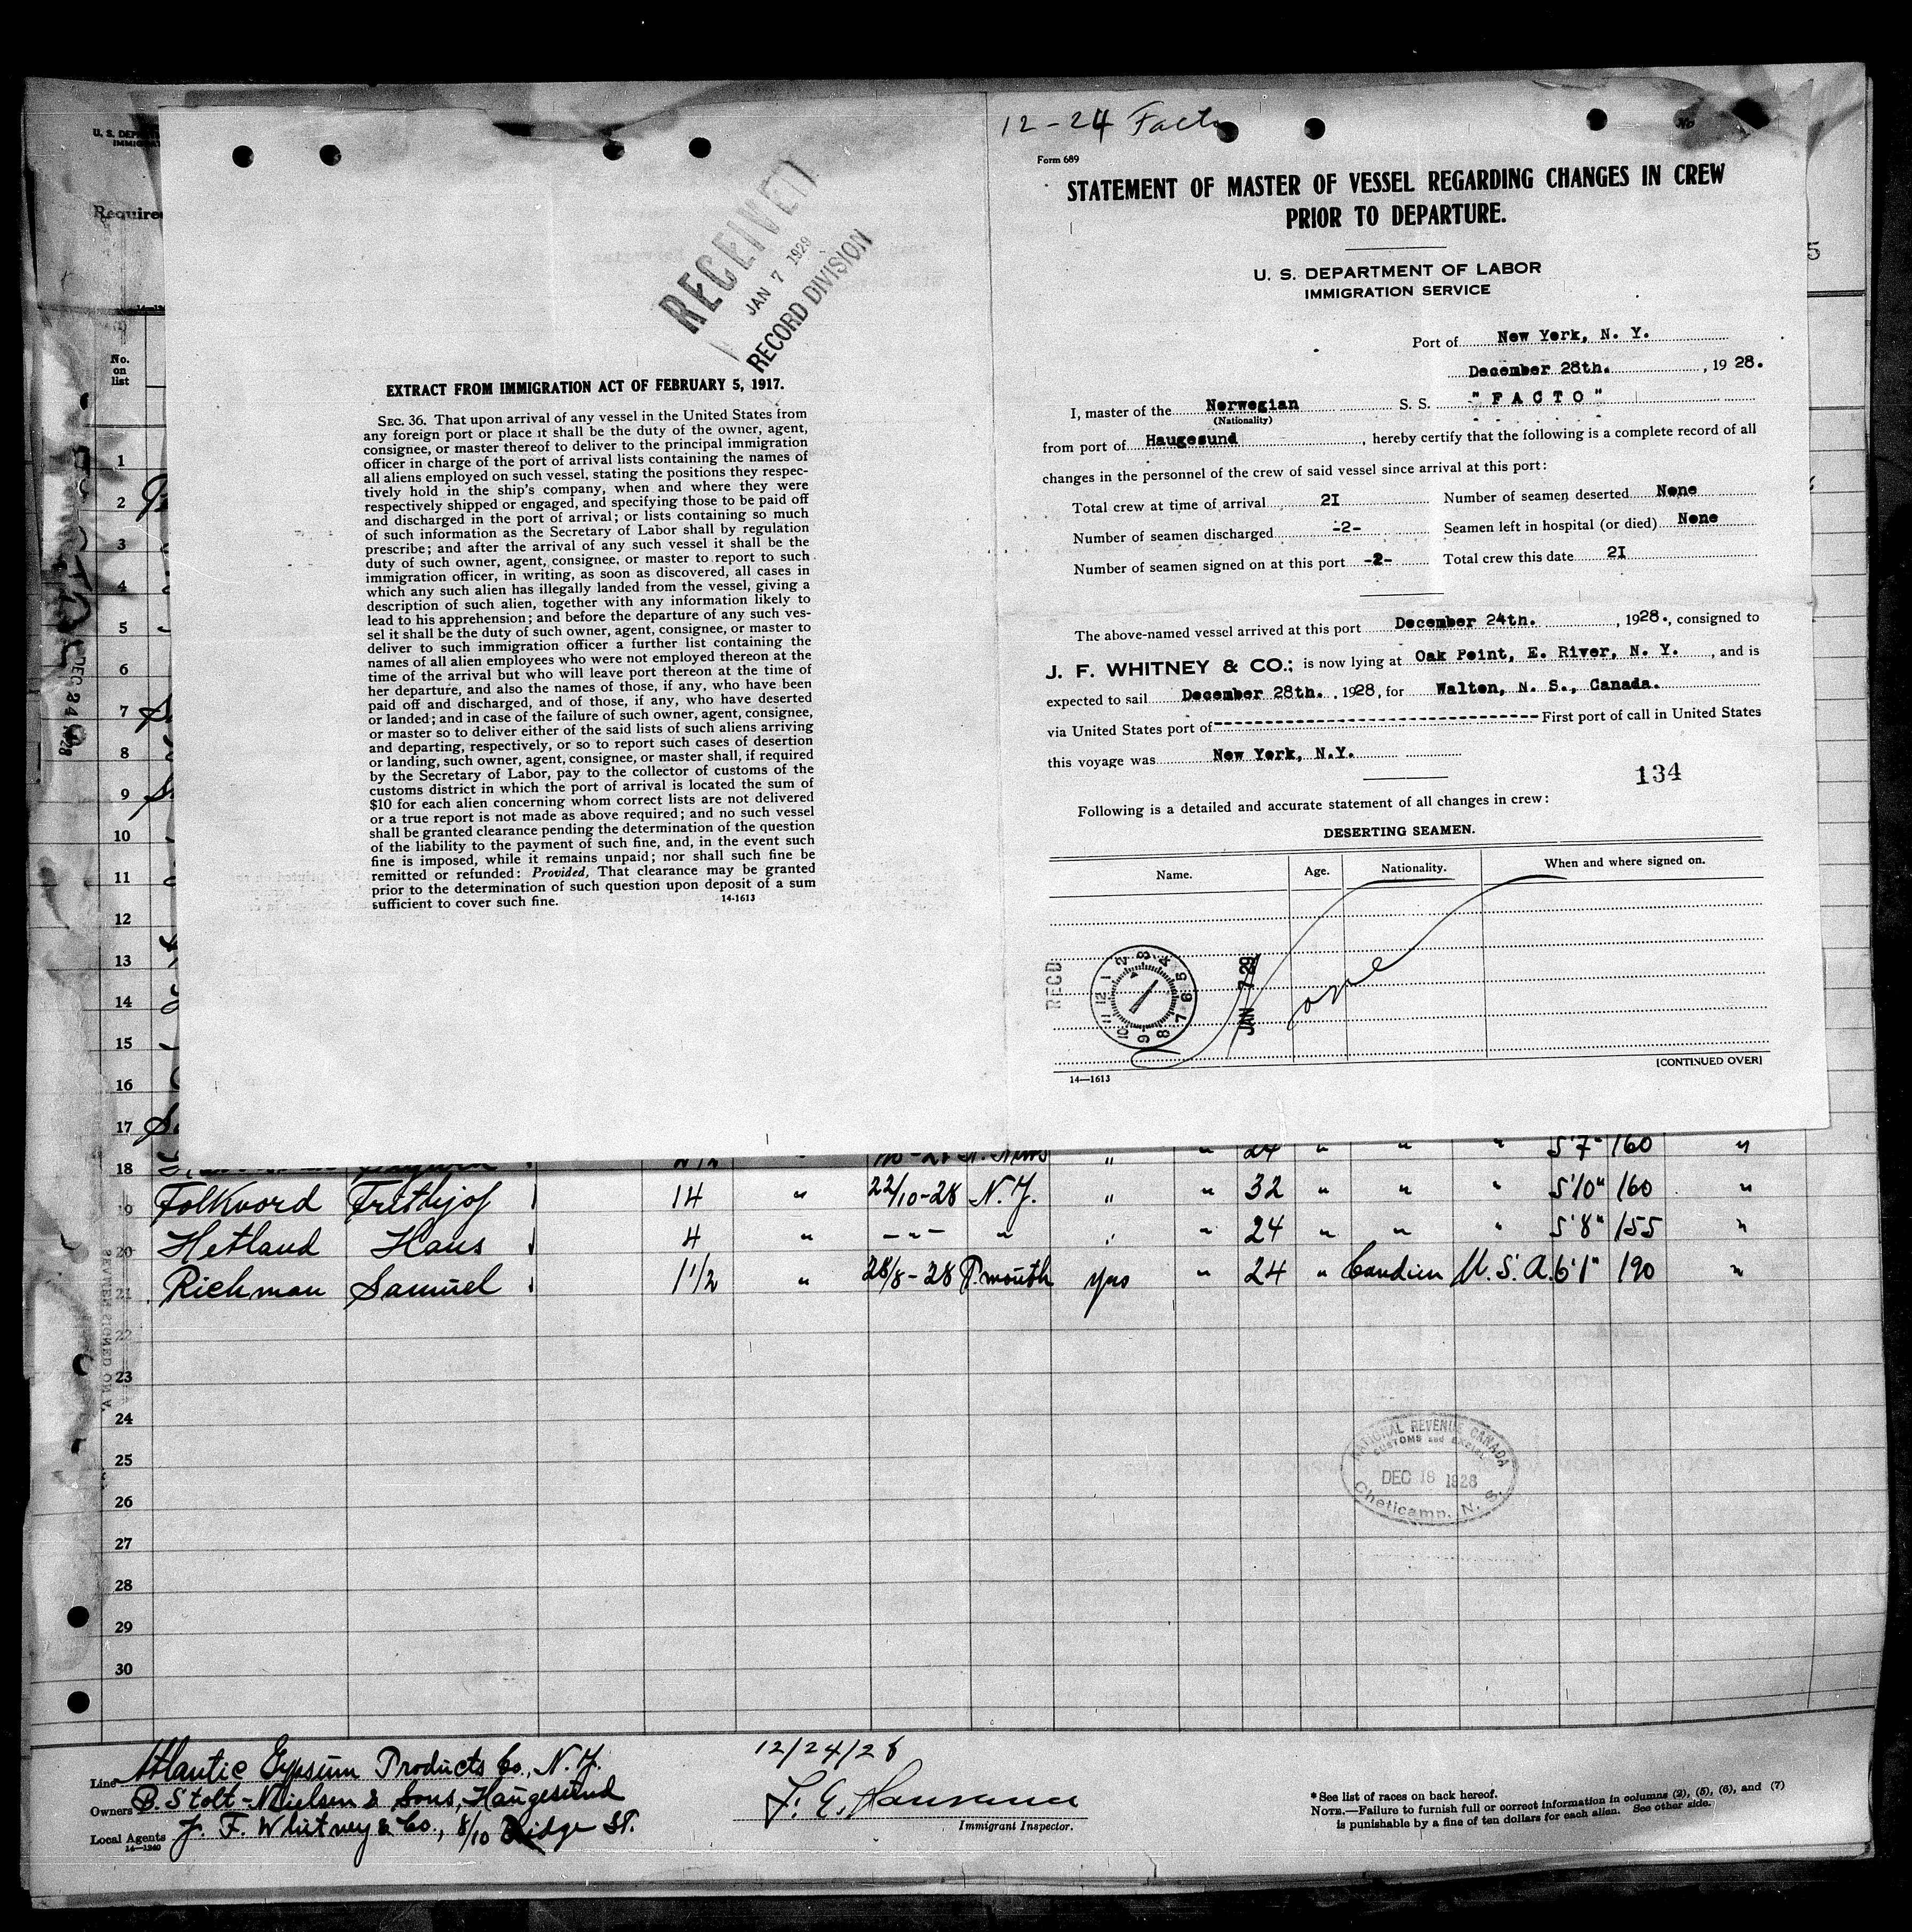 U. S. DEP
IMMIG
Require
No.
on
list
RECEIVED
JAN 7 1929
RECORD DIVISION
EXTRACT FROM IMMIGRATION ACT OF FEBRUARY 5, 1917.
SEC. 36. That upon arrival of any vessel in the United States from
any foreign port or place it shall be the duty of the owner, agent,
consignee, or master thereof to deliver to the principal immigration
officer in charge of the port of arrival lists containing the names of
all aliens employed on such vessel, stating the positions they respec-
tively hold in the ship's company, when and where they were
respectively shipped or engaged, and specifying those to be paid off
and discharged in the port of arrival; or lists containing so much
of such information as the Secretary of Labor shall by regulation
prescribe; and after the arrival of any such vessel it shall be the
duty of such owner, agent, consignee, or master to report to such
immigration officer, in writing, as soon as discovered, all cases in
which any such alien has illegally landed from the vessel, giving a
description of such alien, together with any information likely to
lead to his apprehension; and before the departure of any such ves-
sel it shall be the duty of such owner, agent, consignee, or master to
deliver to such immigration officer a further list containing the
names of all alien employees who were not employed thereon at the
time of the arrival but who will leave port thereon at the time of
her departure, and also the names of those, if any, who have been
paid off and discharged, and of those, if any, who have deserted
or landed; and in case of the failure of such owner, agent, consignee,
or master so to deliver either of the said lists of such aliens arriving
and departing, respectively, or so to report such cases of desertion
or landing, such owner, agent, consignee, or master shall, if required
by the Secretary of Labor, pay to the collector of customs of the
customs district in which the port of arrival is located the sum of
$10 for each alien concerning whom correct lists are not delivered
or a true report is not made as above required; and no such vessel
shall be granted clearance pending the determination of the question
of the liability to the payment of such fine, and, in the event such
fine is imposed, while it remains unpaid; nor shall such fine be
remitted or refunded: Provided, That clearance may be granted
prior to the determination of such question upon deposit of a sum
sufficient to cover such fine. 14-1613
12-24 Facto
No
Form 689
STATEMENT OF MASTER OF VESSEL REGARDING CHANGES IN CREW
PRIOR TO DEPARTURE.
U. S. DEPARTMENT OF LABOR
IMMIGRATION SERVICE
Port of New York, N. Y.
December 28th. , 19 28.
I, master of the Norwegian S. S. "FACTO"
(Nationality)
from port of Haugesund , hereby certify that the following is a complete record of all
changes in the personnel of the crew of said vessel since arrival at this port:
Total crew at time of arrival 21 Number of seamen deserted None
Number of seamen discharged -2- Seamen left in hospital (or died) None
Number of seamen signed on at this port -2- Total crew this date 21
The above-named vessel arrived at this port December 24th. , 1928., consigned to
J. F. WHITNEY & CO.; is now lying at Oak Point, E. River, N. Y. , and is
expected to sail December 28th. , 1928, for Walton, N. S., Canada.
via United States port of ---------------------------------- First port of call in United States
this voyage was New York, N.Y.
134
Following is a detailed and accurate statement of all changes in crew:
DESERTING SEAMEN.
Name. Age. Nationality. When and where signed on.
None
RECD
JAN 7 29
[CONTINUED OVER]
14—1613
DEC 24 1928
1
2
3
4
5
6
7
8
9
10
11
12
13
14
15
16
17
18 " 24 " " " 5'7" 160 "
19 Folkvord Frithjof 14 " 22/10-28 N.Y. " " 32 " " " 5'10" 160 "
20 Hetland Hans 4 " -"- " " " 24 " " " 5'8" 155 "
21 Richman Samuel 1 1/2 " 28/8-28 P.mouth yes " 24 " U.S.A. 6'1" 190 "
22
23
24
25
26
27
28
29
30
NATIONAL REVENUE CANADA
CUSTOMS and EXCISE
DEC 18 1928
Cheticamp, N. S.
Line Atlantic Gypsum Products Co., N.Y.
Owners B. Stolt-Nielsen & Sons, Haugesund
Local Agents J. F. Whitney & Co., 8/10 Bridge St.
14—1240
12/24/28
Immigrant Inspector.
* See list of races on back hereof.
NOTE.—Failure to furnish full or correct information in columns (2), (5), (6), and (7)
is punishable by a fine of ten dollars for each alien. See other side.